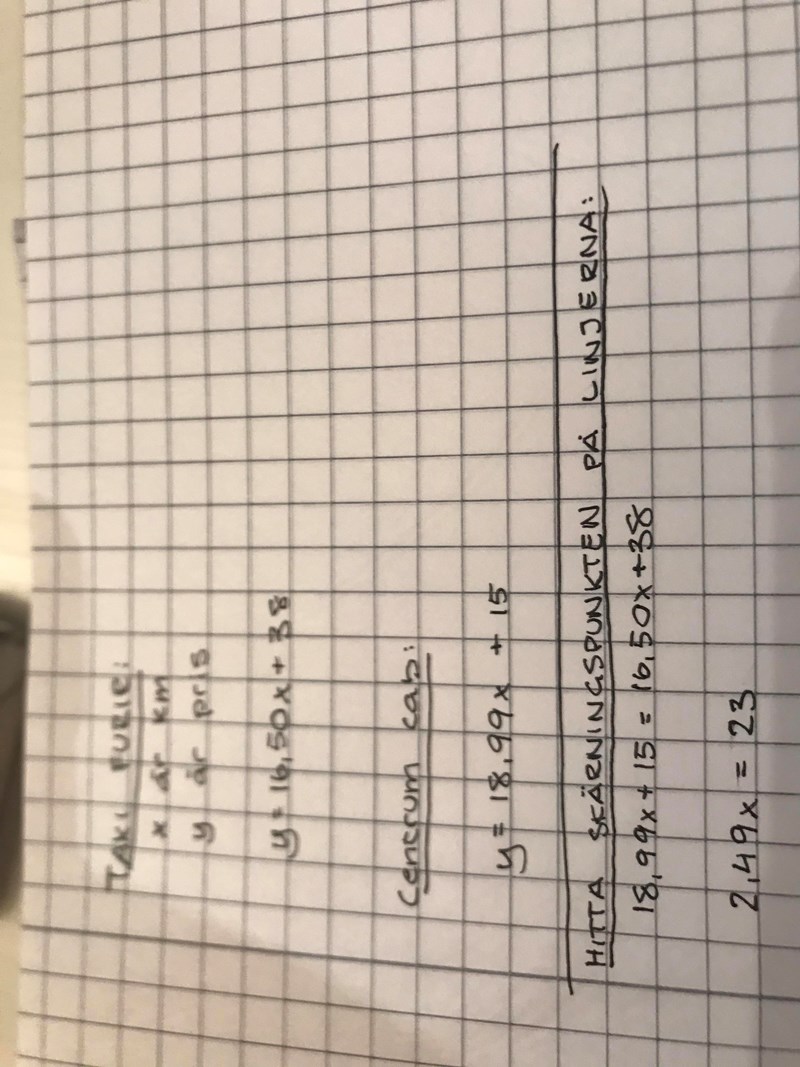 TAXI KURIR:
x är km
y är pris
y = 16,50x + 38
Centrum cab:
y = 18,99x + 15
HITTA SKÄRNINGSPUNKTEN PÅ LINJERNA:
18,99x + 15 = 16,50x + 38
2,49x = 23